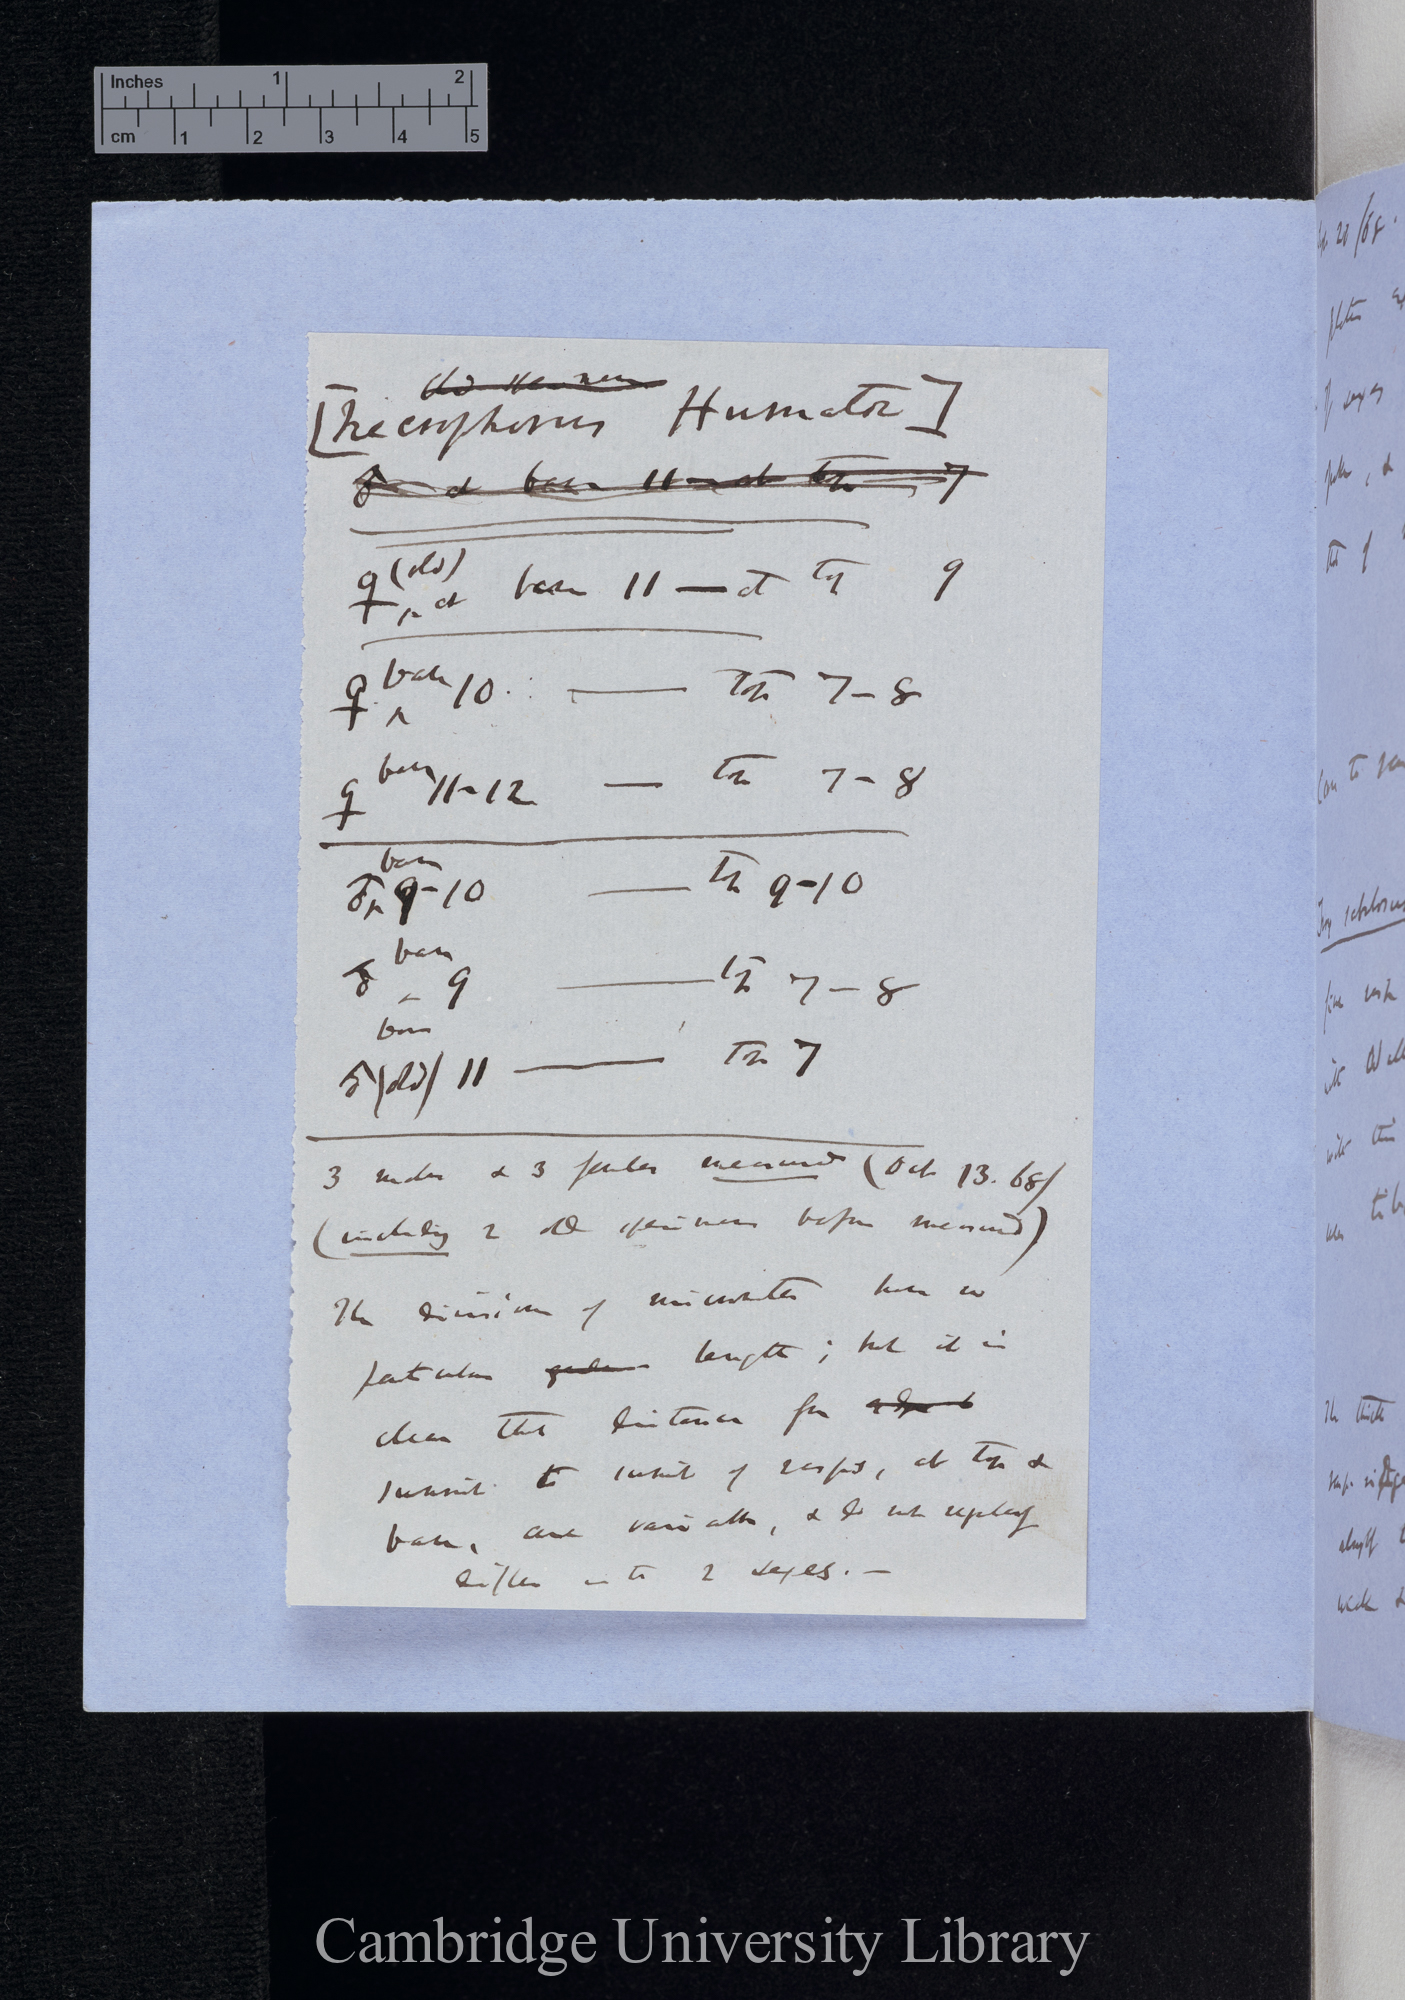 Inches 1 2
cm 1 2 3 4 5
[Necrophorus Humator]
♂ at base 11 — at top 7
♀ (old) ^ at base 11 — at top 9
♀ base ^ 10 — top 7–8
♀ base 11–12 — top 7–8
♂ base ^ 9–10 — top 9–10
♂ base ^ 9 — top 7–8
base
♂ (old) 11 — top 7
3 males & 3 females measured (Oct 13. 68)
(including 2 old specimens before measured)
The divisions of micrometer have no
particular length; but it is
clear that distances from
summit to summit of rasps, at top &
base, are variable, & do not regularly
differ in the 2 sexes. —
20/68.
of sexes
that of
The thick
Cambridge University Library